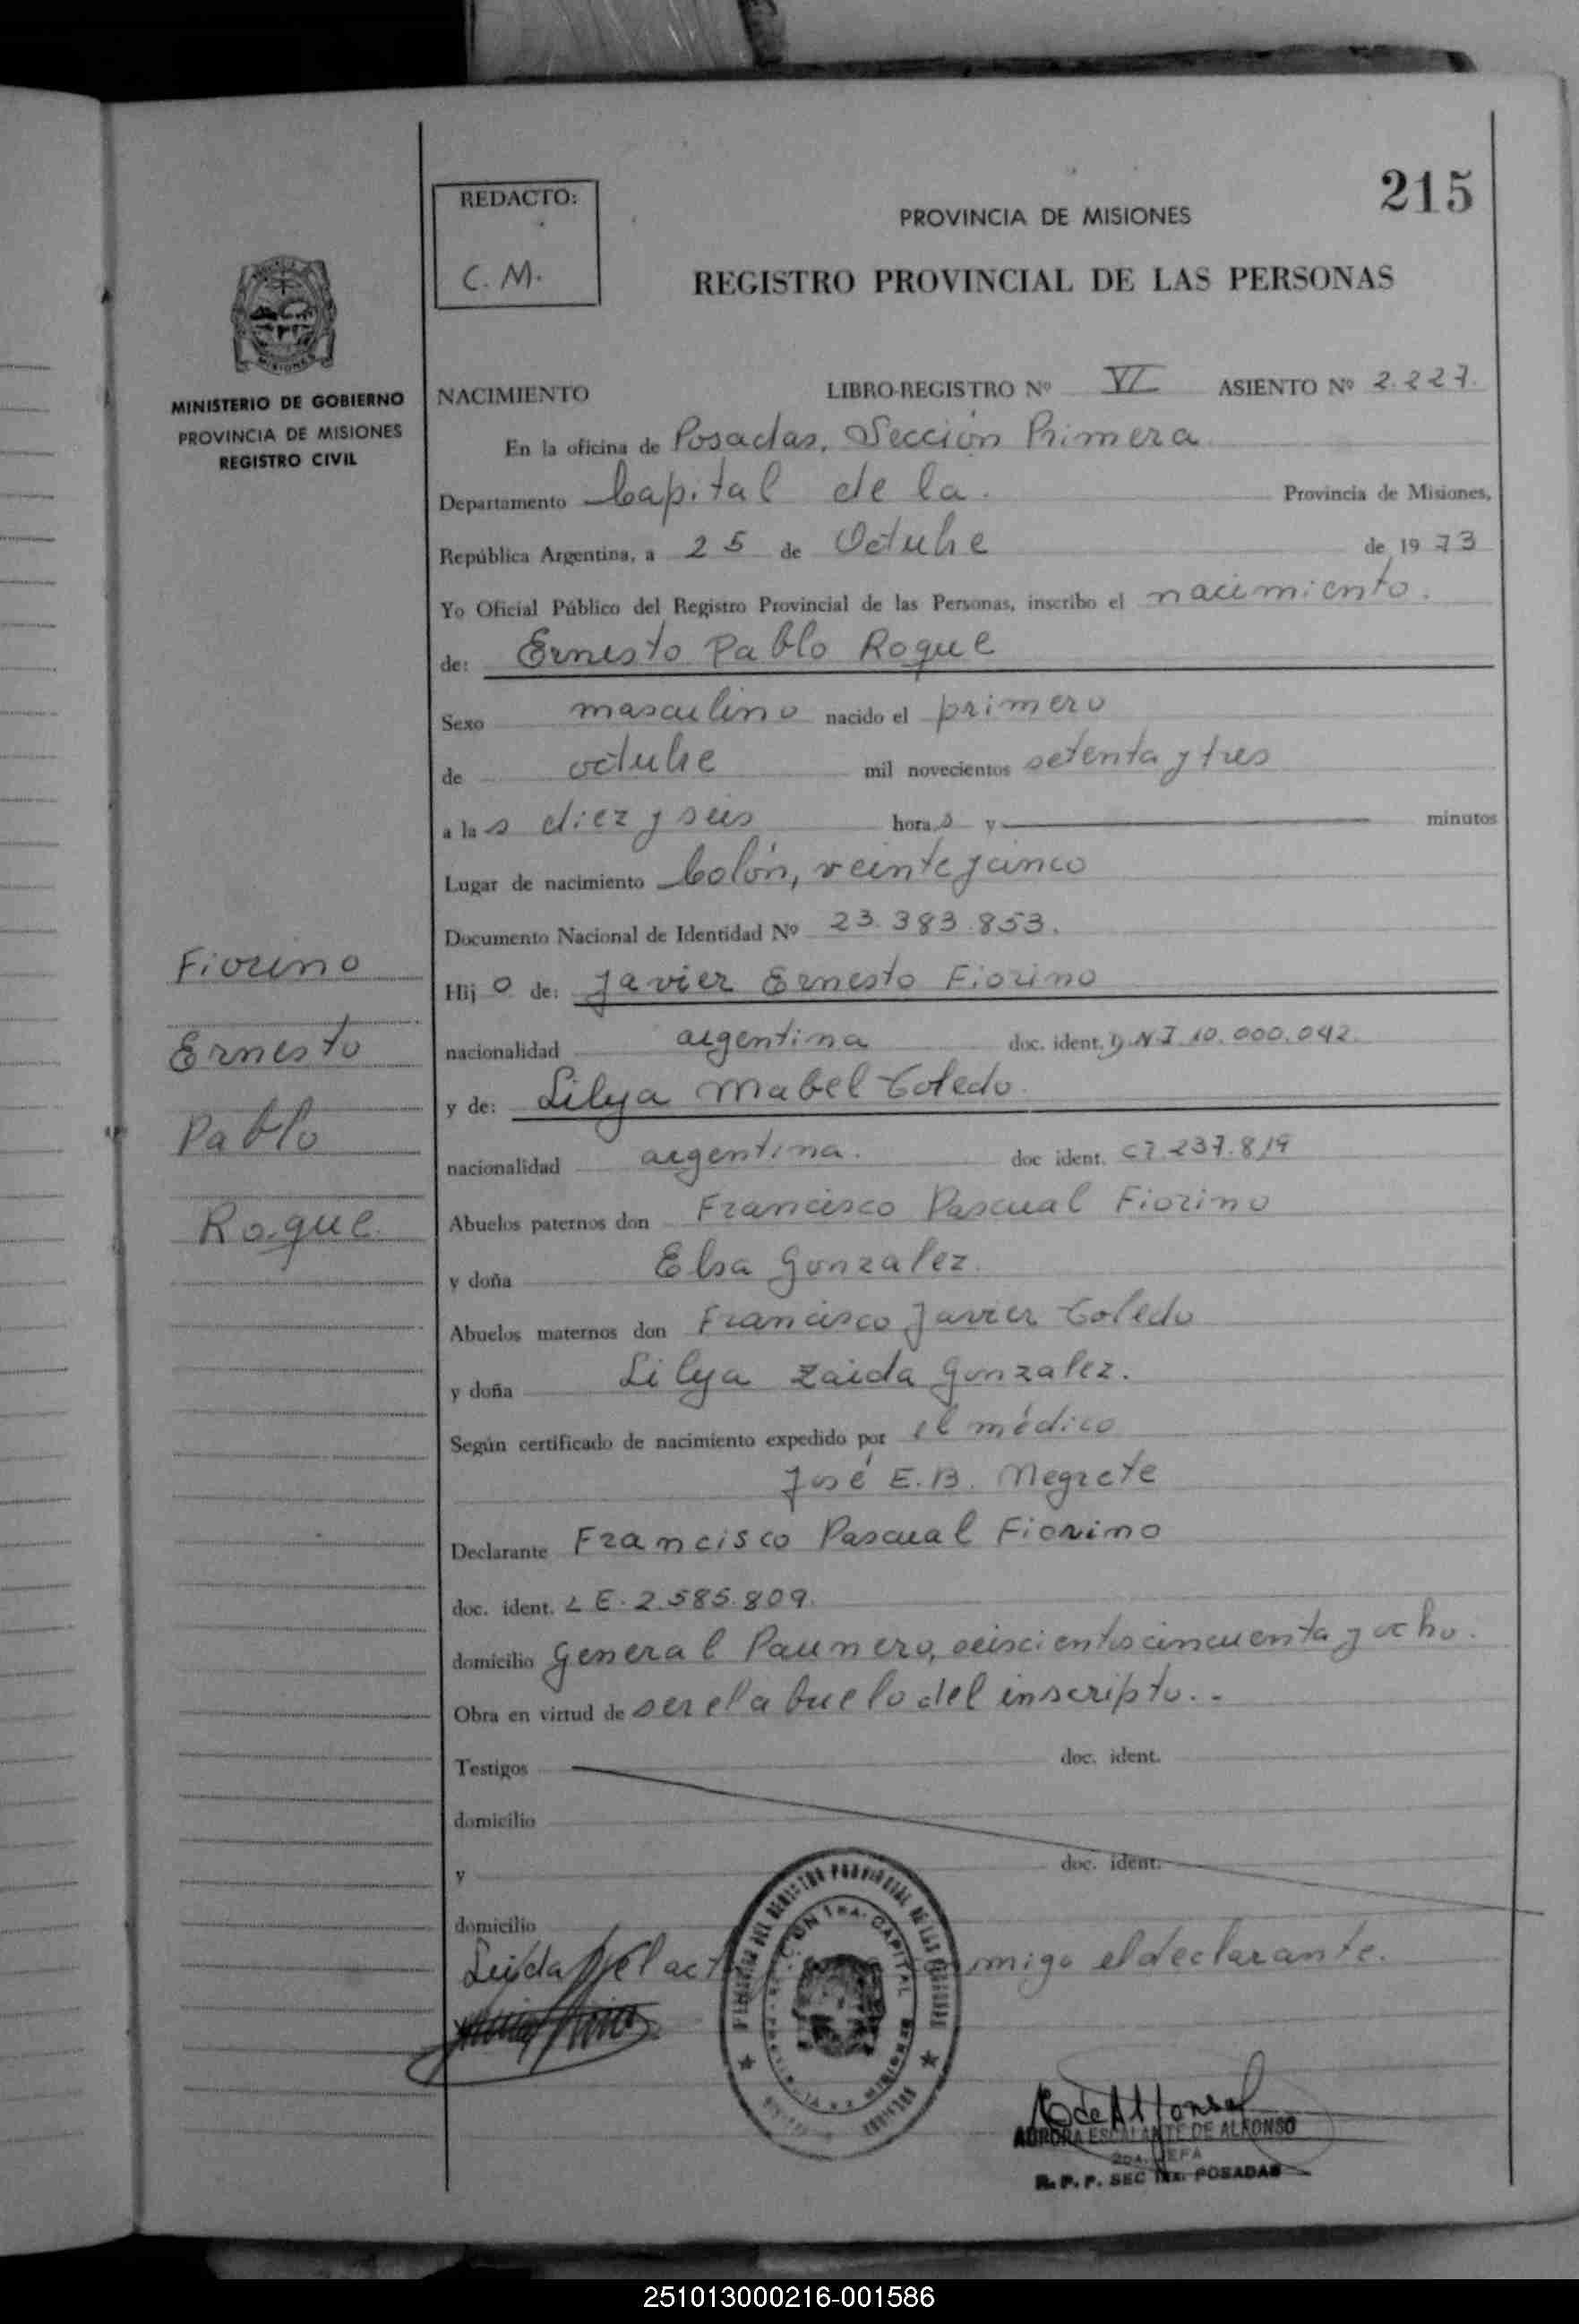 215
REDACTO:
C. M.
PROVINCIA DE MISIONES
REGISTRO PROVINCIAL DE LAS PERSONAS
MISIONES
MINISTERIO DE GOBIERNO
PROVINCIA DE MISIONES
REGISTRO CIVIL
NACIMIENTO LIBRO-REGISTRO Nº VI ASIENTO Nº 2.227.
En la oficina de Posadas, Sección Primera
Departamento Capital de la. Provincia de Misiones,
República Argentina, a 25 de Octubre de 1973
Yo Oficial Público del Registro Provincial de las Personas, inscribo el nacimiento.
de: Ernesto Pablo Roque
Sexo masculino nacido el primero
de octubre mil novecientos setenta y tres
a las diez y seis horas y minutos
Lugar de nacimiento Colón, veinte y cinco
Documento Nacional de Identidad Nº 23.383.853.
Hijo de: Javier Ernesto Fiorino
nacionalidad argentina doc. ident. D.N.I 10.000.042.
y de: Lilya Mabel Toledo.
nacionalidad argentina. doc ident. C7.237.819
Abuelos paternos don Francisco Pascual Fiorino
y doña Elsa Gonzalez.
Abuelos maternos don Francisco Javier Toledo
y doña Lilya Zaida Gonzalez.
Según certificado de nacimiento expedido por el médico
José E.B. Negrete
Declarante Francisco Pascual Fiorino
doc. ident. L E. 2.585.809.
domicilio General Paunero, seiscientos cincuenta y ocho.
Obra en virtud de ser el abuelo del inscripto. -
Testigos doc. ident.
domicilio
y doc. ident.
domicilio
Leída el act migo el declarante.
Fiorino
Ernesto
Pablo
Roque.
DEL REGISTRO PROVINCIAL DE LAS PERSONAS
1RA. CAPITAL
MISIONES
AURORA ESCALANTE DE ALFONSO
2DA. JEFA
R. P. P. SEC 1RA. POSADAS
251013000216-001586